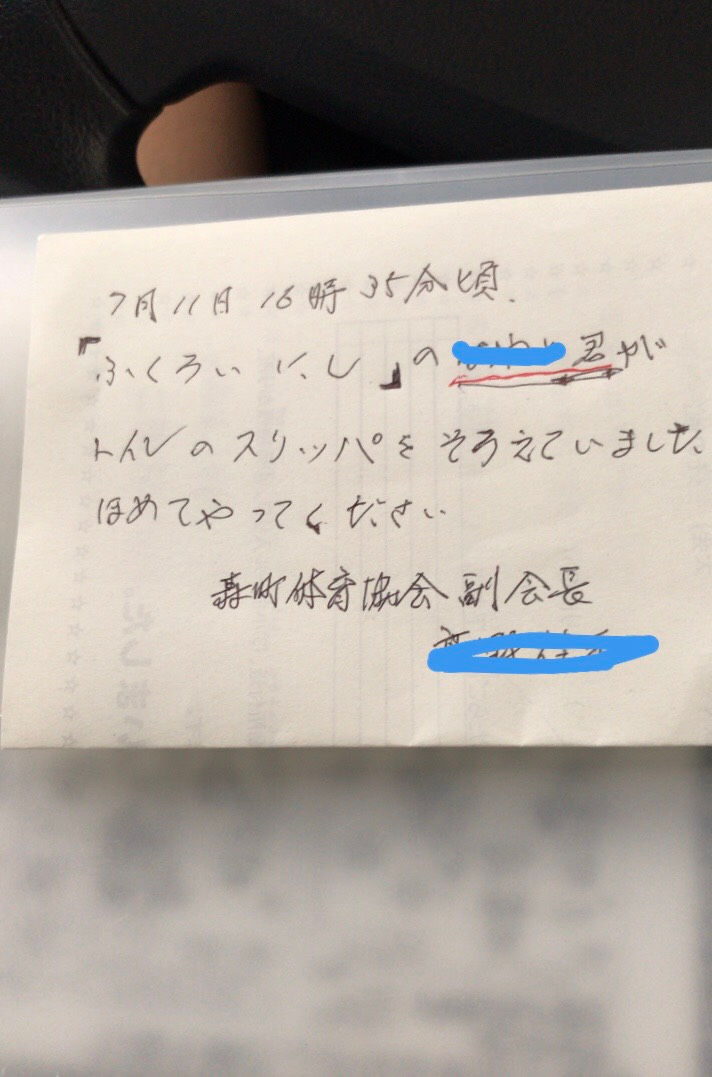 7月11日 16時35分頃.
「ふくろい にし」の 君が
トイレのスリッパをそろえていました.
ほめてやってください
森町体育協会 副会長